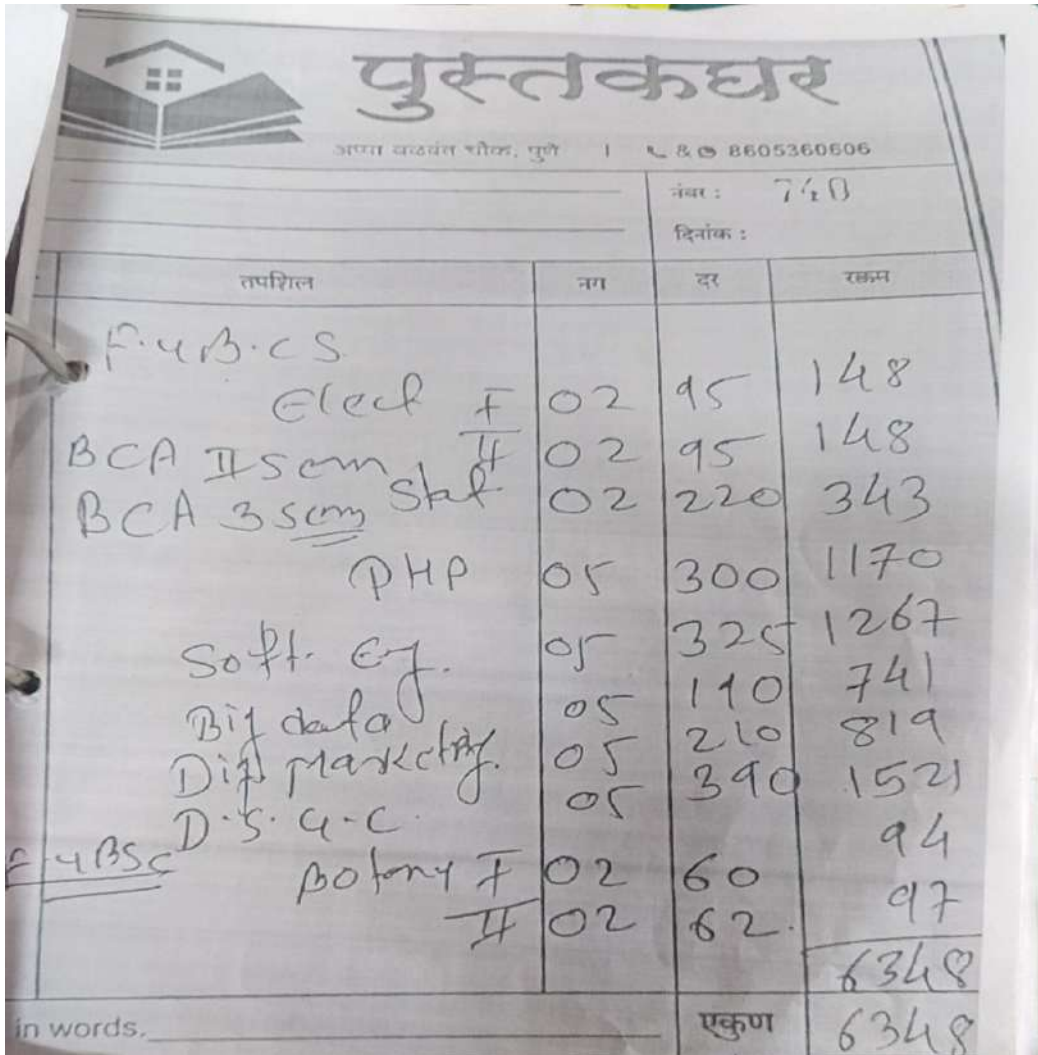 पुस्तकघर
अप्पा बळवंत चौक, पुणे | & 8605360606
नंबर : 740
दिनांक :
तपशिल नग दर रक्कम
F.Y B.C S.
Elect I 02 95 148
II 02 95 148
BCA II Sem Stat. 02 220 343
BCA 3 sem
PHP 05 300 1170
Soft. Eg. 05 325 1267
Big data 05 190 741
Dig Marketing. 05 210 819
D.S. G.C. 05 390 1521
F.Y BSc Botony I 02 60 94
II 02 62. 97
6348
in words. एकुण 6348